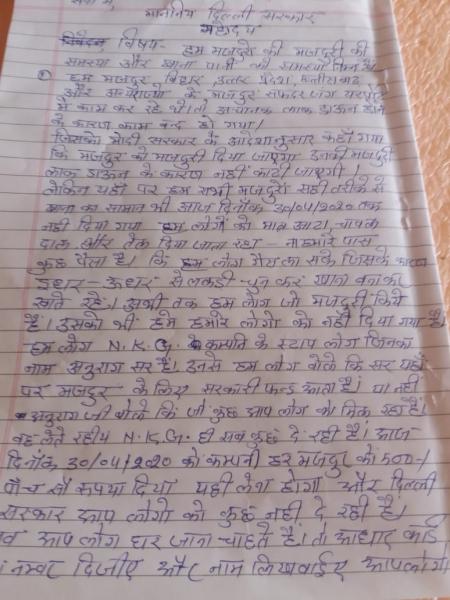 सेवा में,
माननिय दिल्ली सरकार
महोदय
विषय- हम मजदुरो की मजदुरी की
समस्या और खाना पानी की समस्या निम्न है।
हम मजदुर, बिहार उत्तर प्रदेश, छत्तीसगढ़
और अन्य राज्यो के मजदुर सफदरजंग एयरपोर्ट
में काम कर रहे थे। तो अचानक लाक डाऊन होने
के कारण काम बन्द हो गया।
जिसको मोदी सरकार के आदेशानुसार कहाँ गया
कि मजदुर को मजदुरी दिया जाएगा उनकी मजदुरी
लाक डाऊन के कारण नहीं काटी जाएगी।
लेकिन यहाँ पर हम सभी मजदुरो सही तरीके से
खाना का सामान भी आज दिनाँक 30/04/2020 तक
नहीं दिया गया हम लोगों को मात्र आटा, चावल
दाल और तेल दिया जाता रहा - ना हमारे पास
कुछ पैसा है। कि हम लोग गैस ला सके जिसके कारण
इधर-ऊधर से लकडी चुन कर खाना बना कर
खाते रहे। अभी तक हम लोग जो मजदुरी किये
है। उसको भी हमे हमारे लोगो को नही दिया गया है।
हम लोग N.K.G. के कम्पनि के स्टाप लोग जिनका
नाम अनुराग सर है। उनसे हम लोग बोले कि सर यहाँ
पर मजदुर के लिए सरकारी फन्ड आता है। या नहीं
अनुराग जी बोले कि जो कुछ आप लोग को मिल रहा है।
वह लेते रहीय N.K.G. ही सब कुछ दे रही है। आज
दिनाँक 30/04/2020 को कम्पनी हर मजदुर को 500-/
पाँच सौ रूपया दिया यही लेना होगा और दिल्ली
सरकार आप लोगो को कुछ नहीं दे रही है।
आप लोग घर जाना चाहते है। तो आधार कार्ड
नम्बर दिजीए और नाम लिखवाईए आपलोगो